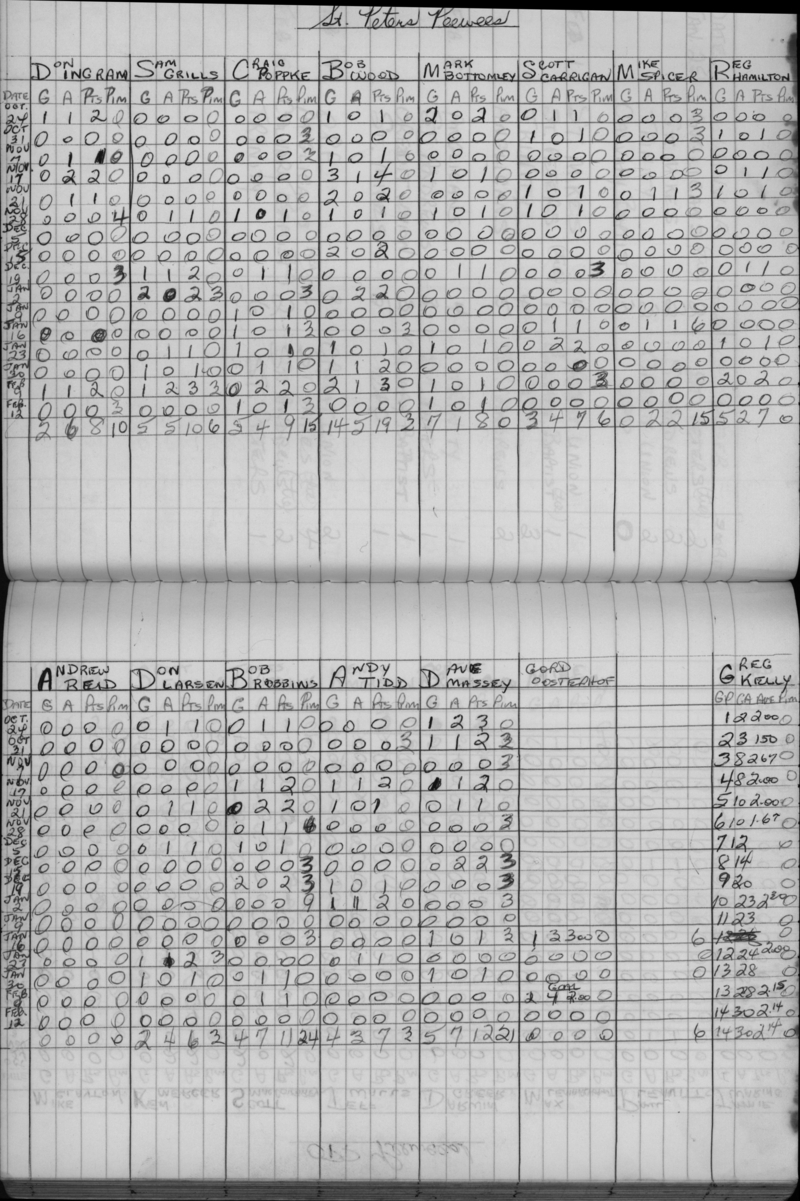 St. Peters Peewees
DON INGRAM SAM GRILLS CRAIG POPPKE BOB WOOD MARK BOTTOMLEY SCOTT CARRIGAN MIKE SPICER REG HAMILTON
DATE G A Pts Pim G A Pts Pim G A Pts Pim G A Pts Pim G A Pts Pim G A Pts Pim G A Pts Pim G A Pts Pim
OCT. 24 1 1 2 0 0 0 0 0 0 0 0 0 1 0 1 0 2 0 2 0 0 1 1 0 0 0 0 3 0 0 0 0
OCT 31 0 0 0 0 0 0 0 0 0 0 0 3 0 0 0 0 0 0 0 0 1 0 1 0 0 0 0 3 1 0 1 0
NOV 7 0 1 1 0 0 0 0 0 0 0 0 3 1 0 1 0 0 0 0 0 0 0 0 0 0 0 0 0 0 0 0 0
NOV 17 0 2 2 0 0 0 0 0 0 0 0 0 3 1 4 0 1 0 1 0 0 0 0 0 0 0 0 0 0 1 1 0
NOV 21 0 1 1 0 0 0 0 0 0 0 0 0 2 0 2 0 0 0 0 0 1 0 1 0 0 1 1 3 1 0 1 0
NOV 28 0 0 0 4 0 1 1 0 1 0 1 0 1 0 1 0 1 0 1 0 1 0 1 0 0 0 0 0 0 0 0 0
DEC 5 0 0 0 0 0 0 0 0 0 0 0 0 0 0 0 0 0 0 0 0 0 0 0 0 0 0 0 0 0 0 0 0
DEC 0 0 0 0 0 0 0 0 0 0 0 0 2 0 2 0 0 0 0 0 0 0 0 0 0 0 0 0 0 0 0 0
DEC 19 0 0 0 3 1 1 2 0 0 1 1 0 0 0 0 0 0 1 1 0 0 0 0 3 0 0 0 0 0 1 1 0
JAN 2 0 0 0 0 2 0 2 3 0 0 0 3 0 2 2 0 0 0 0 0 0 0 0 0 0 0 0 0 0 0 0 0
JAN 9 0 0 0 0 0 0 0 0 1 0 1 0 0 0 0 0 0 0 0 0 0 0 0 0 0 0 0 0 0 0 0 0
JAN 16 0 0 0 0 0 0 0 0 1 0 1 3 0 0 0 3 0 0 0 0 0 1 1 0 0 1 1 6 0 0 0 0
JAN 23 0 0 0 0 0 1 1 0 1 0 1 0 1 0 1 0 1 0 1 0 0 2 2 0 0 0 0 0 1 0 1 0
JAN 30 0 0 0 0 1 0 1 0 0 1 1 0 1 1 2 0 0 0 0 0 0 0 0 0 0 0 0 0 0 0 0 0
FEB 9 1 1 2 0 1 2 3 3 0 2 2 0 2 1 3 0 1 0 1 0 0 0 0 3 0 0 0 0 2 0 2 0
FEB. 12 0 0 0 3 0 0 0 0 1 0 1 3 0 0 0 0 1 0 1 0 0 0 0 0 0 0 0 0 0 0 0 0
2 6 8 10 5 5 10 6 5 4 9 15 14 5 19 3 7 1 8 0 3 4 7 6 0 2 2 15 5 2 7 0
ANDREW READ DON LARSEN BOB ROBBINS ANDY TIDD DAVE MASSEY GORD OOSTERHOF GREG KELLY
DATE G A Pts Pim G A Pts Pim G A Pts Pim G A Pts Pim G A Pts Pim GP GA Ave Pim
OCT. 24 0 0 0 0 0 1 1 0 0 1 1 0 0 0 0 0 1 2 3 0 1 2 2.00 0
OCT 31 0 0 0 0 0 0 0 0 0 0 0 0 0 0 0 3 1 1 2 3 2 3 1.50 0
NOV 7 0 0 0 0 0 0 0 0 0 0 0 0 0 0 0 0 0 0 0 3 3 8 2.67 0
NOV 17 0 0 0 0 0 0 0 0 1 1 2 0 1 1 2 0 1 1 2 0 4 8 2.00 0
NOV 21 0 0 0 0 0 1 1 0 0 2 2 0 1 0 1 0 0 1 1 0 5 10 2.00 0
NOV 28 0 0 0 0 0 0 0 0 0 1 1 0 0 0 0 0 0 0 3 6 10 1.67 0
DEC 5 0 0 0 0 0 1 1 0 1 0 1 0 0 0 0 0 0 0 0 0 7 12 0
DEC 0 0 0 0 0 0 0 0 0 0 0 3 0 0 0 0 0 2 2 3 8 14 0
DEC 19 0 0 0 0 0 0 0 0 2 0 2 3 1 0 1 0 0 0 0 3 9 20 0
JAN 2 0 0 0 0 0 0 0 0 0 0 0 9 1 1 2 0 0 0 0 3 10 23 2.30 0
JAN 9 0 0 0 0 0 0 0 0 0 0 0 0 0 0 0 0 0 0 0 0 11 23 0
JAN 16 0 0 0 0 0 0 0 0 0 0 0 3 0 0 0 0 1 0 1 3 1 3 3.00 0 6
JAN 23 0 0 0 0 1 1 2 3 0 0 0 0 0 1 1 0 0 0 0 0 0 0 0 0 0 12 24 2.00
JAN 30 0 0 0 0 1 0 1 0 0 1 1 0 0 0 0 0 1 0 1 0 0 0 0 0 0 13 28 0
FEB 9 0 0 0 0 0 0 0 0 0 1 1 0 0 0 0 0 0 0 0 0 Goal 2 4 2.00 0 13 28 2.15 0
FEB. 12 0 0 0 0 0 0 0 0 0 0 0 0 0 0 0 0 0 0 0 0 0 0 0 0 14 30 2.14 0
0 0 0 0 2 4 6 3 4 7 11 24 4 3 7 3 5 7 12 21 0 0 0 0 6 14 30 2.14 0